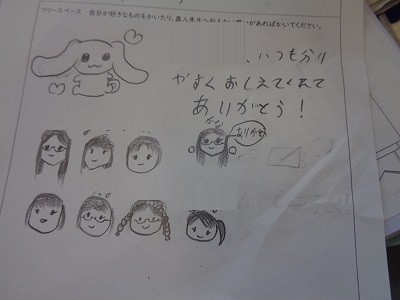 フリースペース 自分が好きなものをかいたり、真人先生へ
があればかいてください。
、いつも分り
やすくおしえてくれて
ありがとう!